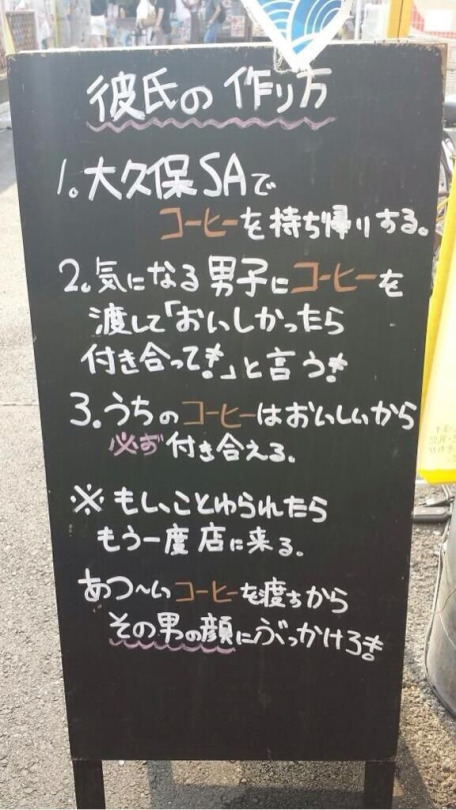 彼氏の作り方
1。大久保SAで
コーヒーを持ち帰りする。
2。気になる男子にコーヒーを
渡して「おいしかったら
付き合って!」と言う!
3。うちのコーヒーはおいしいから
必ず付き合える。
※もしことわられたら
もう一度店に来る。
あつ〜いコーヒーを渡すから
その男の顔にぶっかけろ!